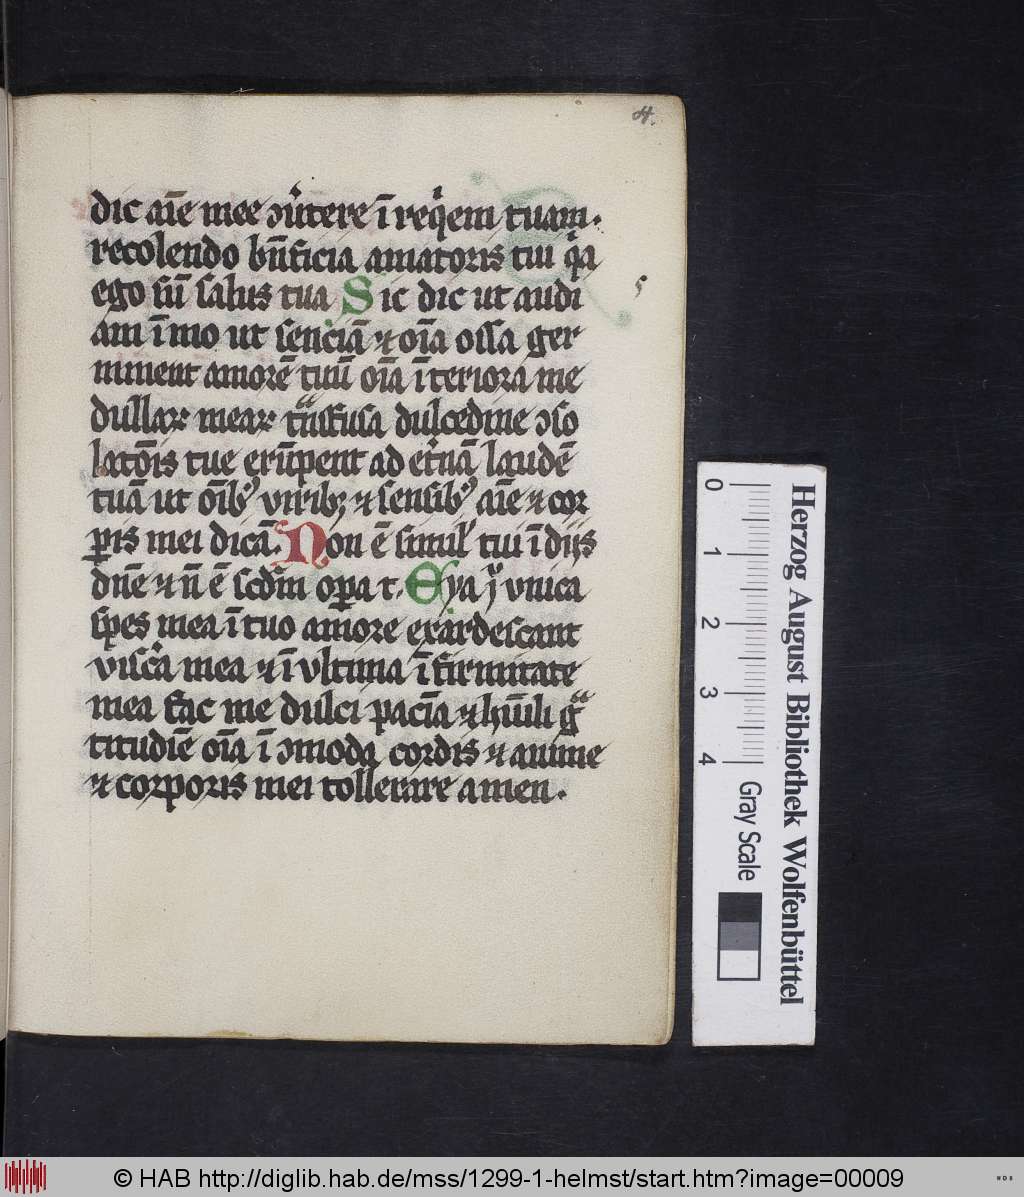 4.
dic aīe mee ꝯuͥtere ī reqͥem tuam.
recolendo bn̄ficia amatoris tui qͥa
ego sū salus tua Sic dic ut audi
5
am ī mo ut senciā ⁊ oīa ossa ger
minent amorē tuū oīa īteriora me
dullaꝝ meaꝝ tͣnsfusa dulcedine ꝯso
latōis tue erūpent ad etͥnā laudē
tuā ut oībꝰ viribꝫ ⁊ sensibꝰ aīe ⁊ cor
ꝑis mei dicā. Non ē simil' tui ī dijs
dn̄e ⁊ n̄ ē scdm̄ oꝑa t. Eya vnica
spes mea ī tuo amore exardescant
visc͛a mea ⁊ ī vltima īfirmitate
mea fac me dulci pacīa ⁊ hūili gͣ
titudīe oīa īꝯmoda cordis ⁊ anime
⁊ corporis mei tollerare amen.
0 1 2 3 4
Gray Scale
Herzog August Bibliothek Wolfenbüttel
© HAB http://diglib.hab.de/mss/1299-1-helmst/start.htm?image=00009